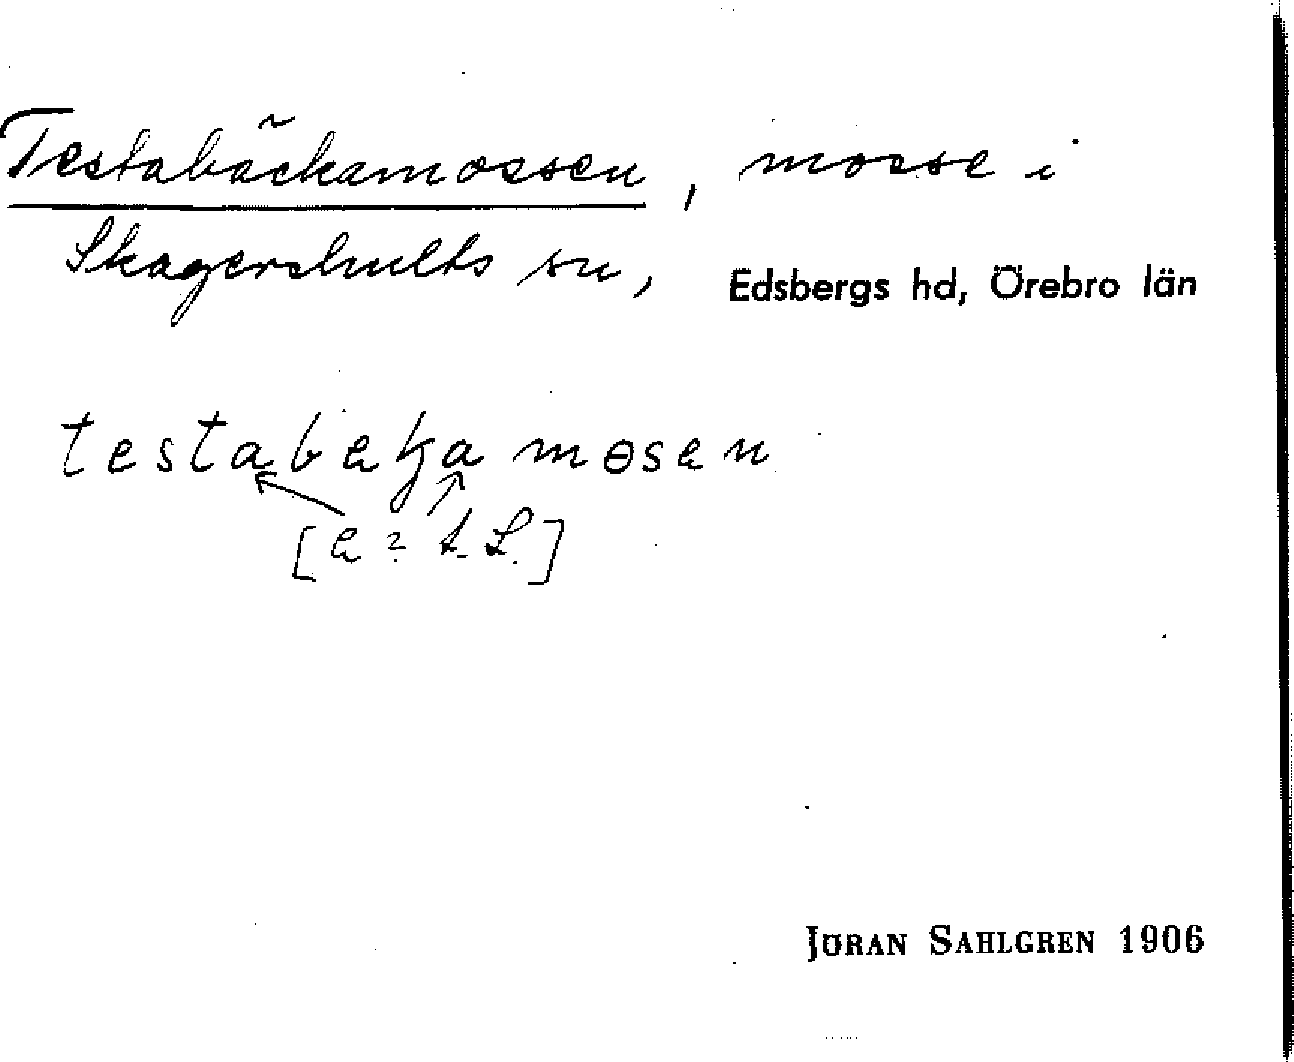 Testabäckamossen, mosse i
Skagershults sn, Edsbergs hd, Örebro län
testabekamosen
[e? t. S.]
JÖRAN SAHLGREN 1906